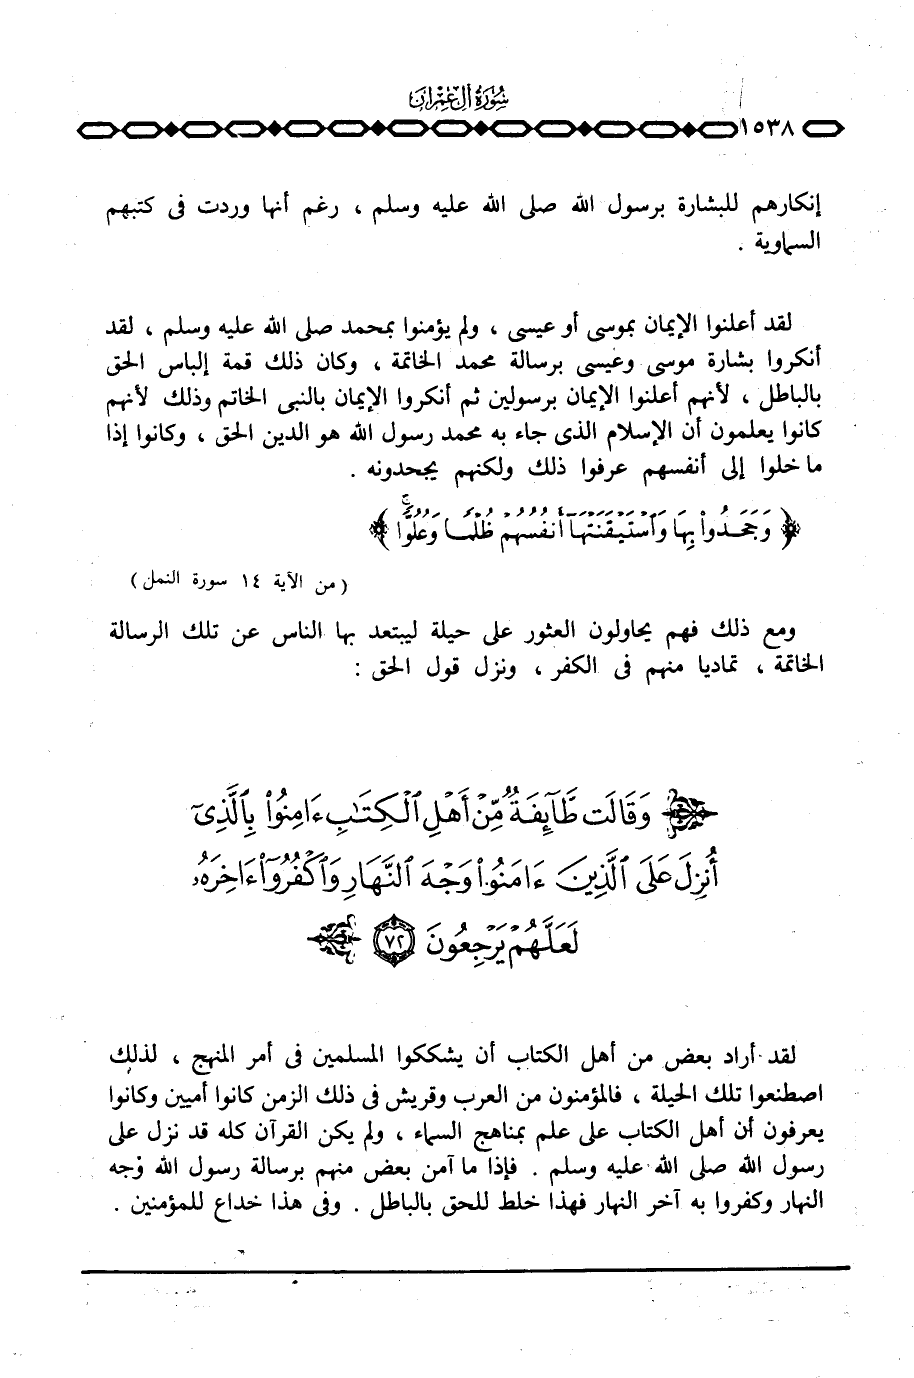 سُورَةُ آلِ عِمْرَانَ
١٥٣٨
إنكارهم للبشارة برسول الله صلى الله عليه وسلم ، رغم أنها وردت فى كتبهم
السماوية .
لقد أعلنوا الإيمان بموسى أو عيسى ، ولم يؤمنوا بمحمد صلى الله عليه وسلم ، لقد
أنكروا بشارة موسى وعيسى برسالة محمد الخاتمة ، وكان ذلك قمة إلباس الحق
بالباطل ، لأنهم أعلنوا الإيمان برسولين ثم أنكروا الإيمان بالنبى الخاتم وذلك لأنهم
كانوا يعلمون أن الإسلام الذى جاء به محمد رسول الله هو الدين الحق ، وكانوا إذا
ما خلوا إلى أنفسهم عرفوا ذلك ولكنهم يجحدونه .
﴿ وَجَحَدُواْ بِهَا وَٱسْتَيْقَنَتْهَآ أَنفُسُهُمْ ظُلْمًا وَعُلُوًّا ۚ ﴾
( من الآية ١٤ سورة النمل )
ومع ذلك فهم يحاولون العثور على حيلة ليبتعد بها الناس عن تلك الرسالة
الخاتمة ، تماديا منهم فى الكفر ، ونزل قول الحق :
﴿ وَقَالَت طَّآئِفَةٌ مِّنْ أَهْلِ ٱلْكِتَٰبِ ءَامِنُواْ بِٱلَّذِىٓ
أُنزِلَ عَلَى ٱلَّذِينَ ءَامَنُواْ وَجْهَ ٱلنَّهَارِ وَٱكْفُرُوٓاْ ءَاخِرَهُۥ
لَعَلَّهُمْ يَرْجِعُونَ ٧٢ ﴾
لقد أراد بعض من أهل الكتاب أن يشككوا المسلمين فى أمر المنهج ، لذلك
اصطنعوا تلك الحيلة ، فالمؤمنون من العرب وقريش فى ذلك الزمن كانوا أميين وكانوا
يعرفون أن أهل الكتاب على علم بمناهج السماء ، ولم يكن القرآن كله قد نزل على
رسول الله صلى الله عليه وسلم . فإذا ما آمن بعض منهم برسالة رسول الله وجه
النهار وكفروا به آخر النهار فهذا خلط للحق بالباطل . وفى هذا خداع للمؤمنين .